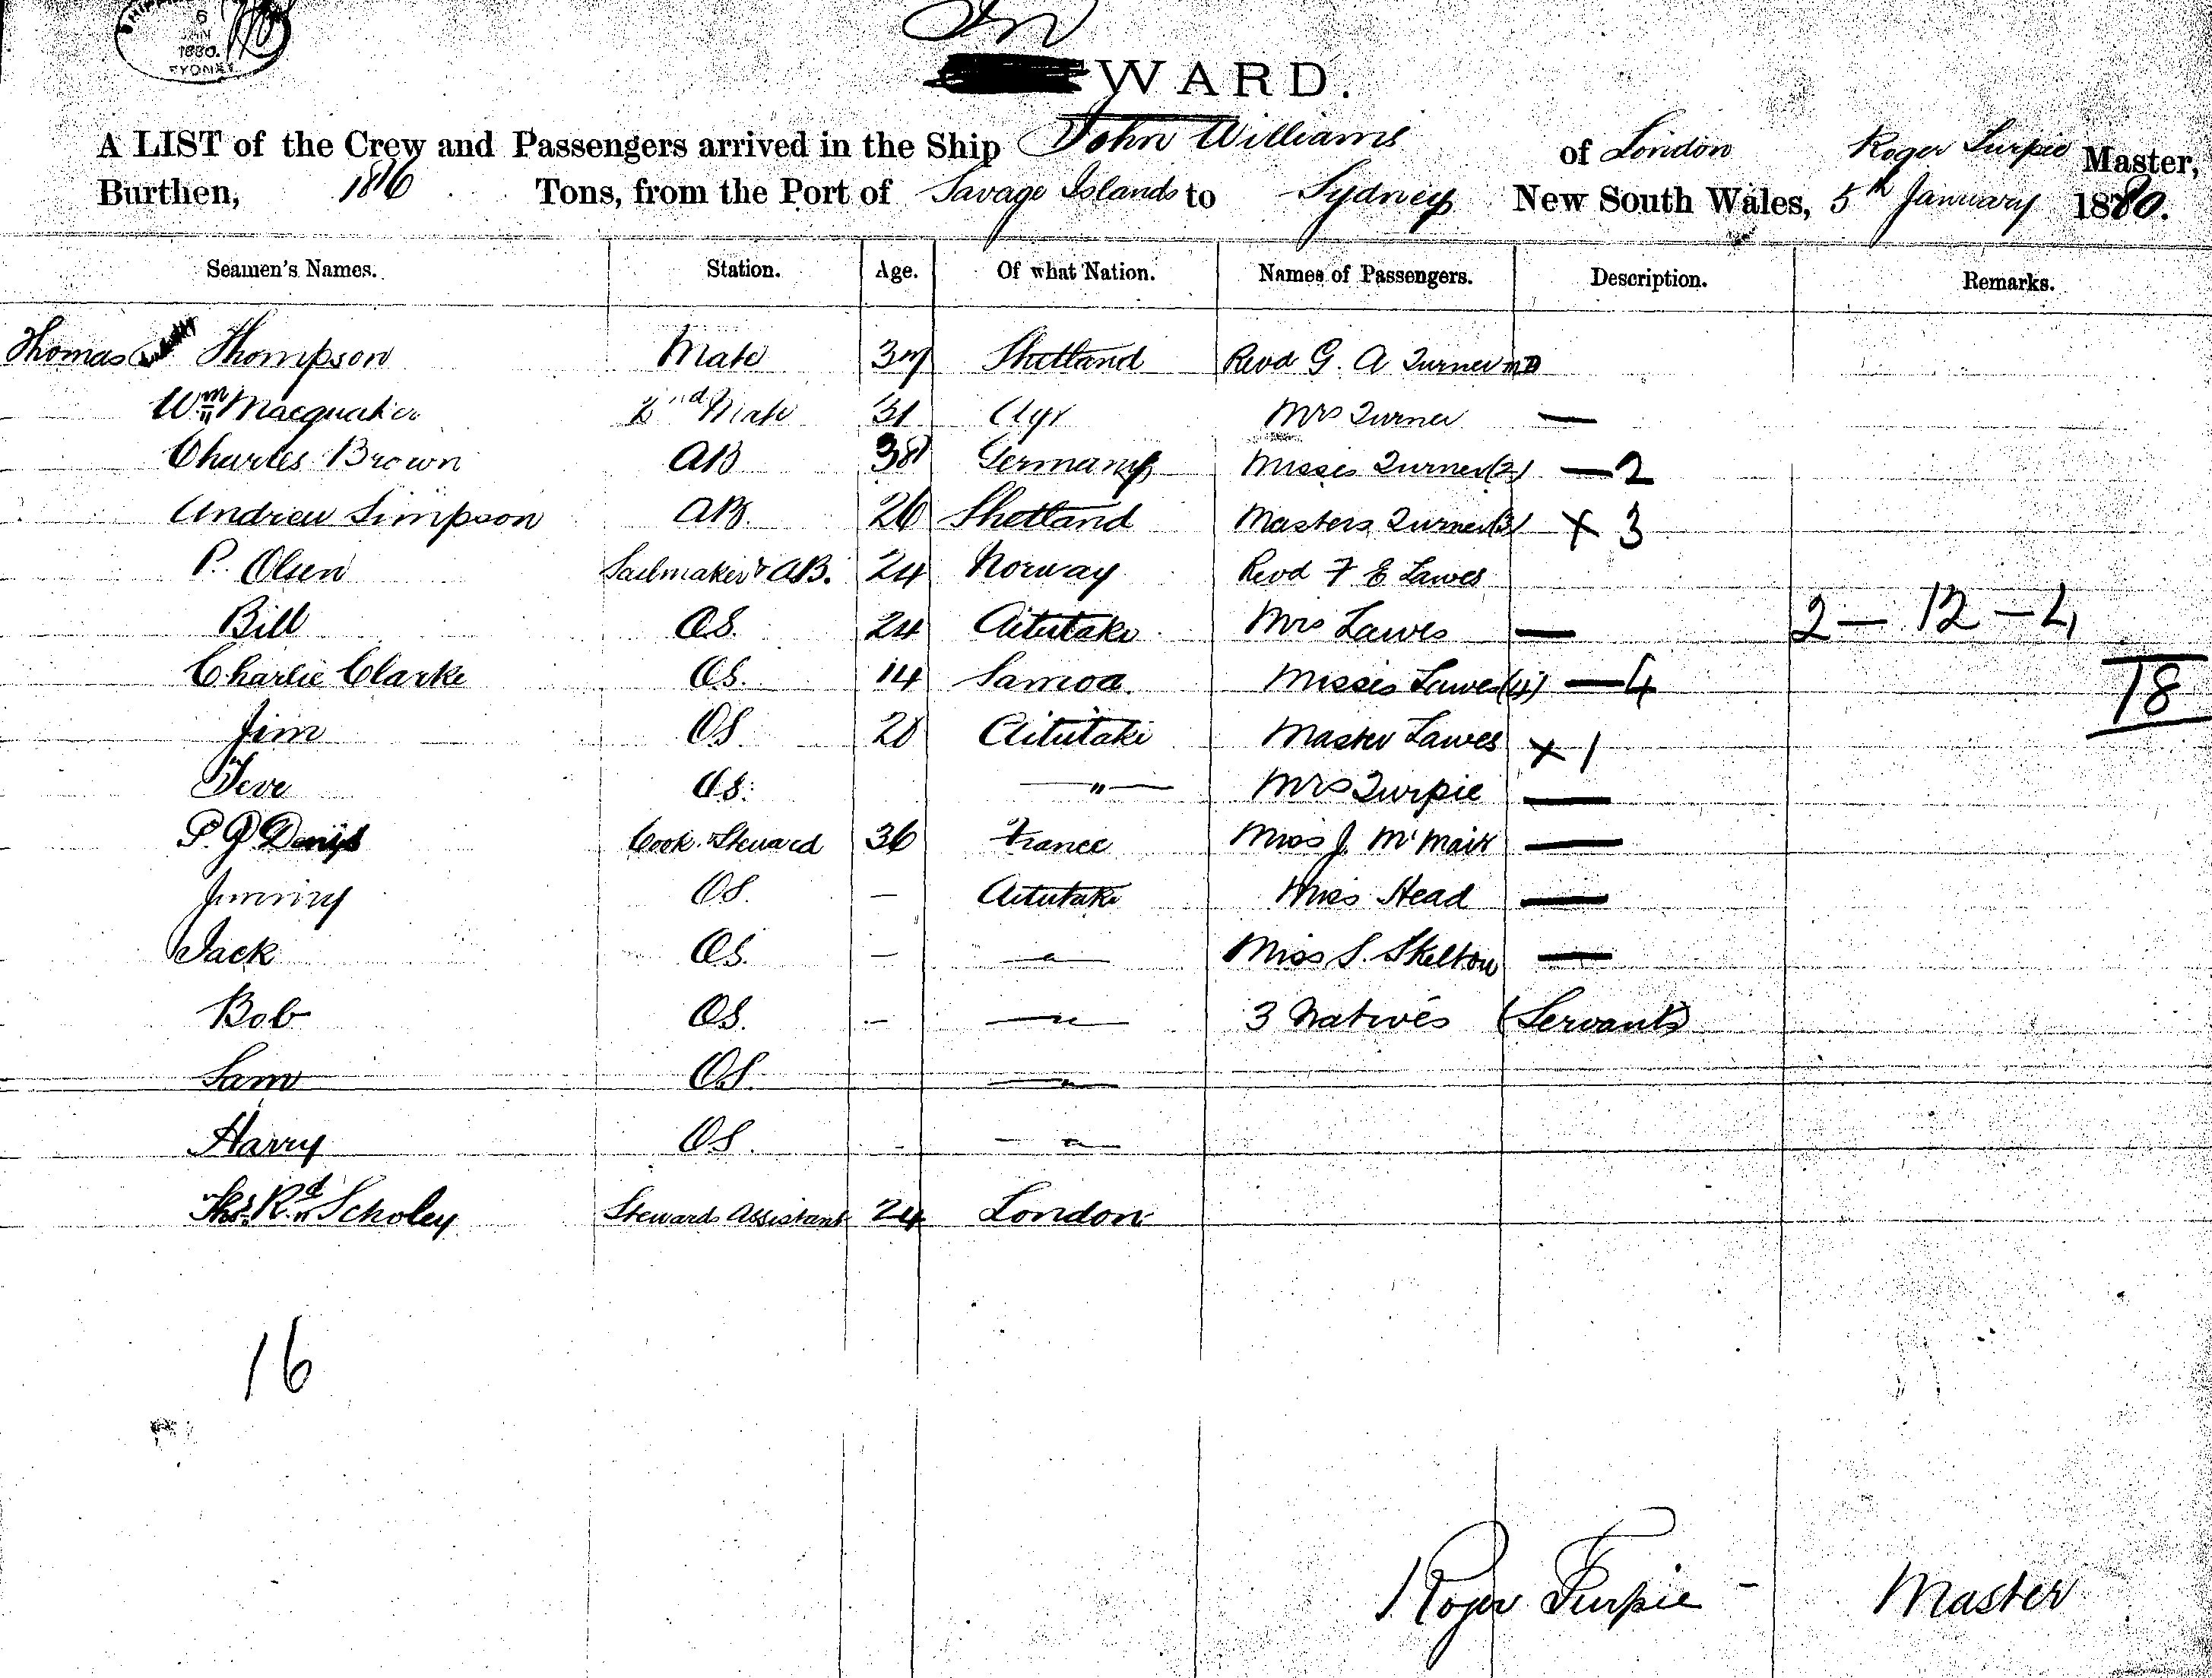 6
JAN
1880.
SYDNEY
In
WARD.
A LIST of the Crew and Passengers arrived in the Ship John Williams of London Roger Turpie Master,
Burthen, 186 Tons, from the Port of Savage Islands to Sydney New South Wales, 5th January 1880.
Seamen's Names. Station. Age. Of what Nation. Names of Passengers. Description. Remarks.
Thomas Thompson Mate 37 Shetland Revd G. A Turner MD
Wm Macquaker 2nd Mate 31 Ayr Mrs Turner —
Charles Brown AB 38 Germany Misses Turner (2) — 2
Andrew Simpson AB. 26 Shetland Masters Turner (3) x 3
P. Olsen Sailmaker & AB. 24 Norway Revd F E Lawes
Bill OS. 24 Aitutaki Mrs Lawes — 2 — 12 — 4
Charlie Clarke OS. 14 Samoa. Misses Lawes (4) — 4 18
Jim OS 20 Aitutaki Master Lawes x 1
Teve OS. — " — Mrs Turpie —
P. J. Denijs Cook & Steward 36 France Miss J. McMair —
Jimmy OS. — Aitutaki Miss Head —
Jack OS. — — " — Miss S. Skelton —
Bob OS. — — " — 3 Natives (Servants)
Sam OS. — " —
Harry OS. - — " —
Thos Rd Scholey Stewards Assistant 24 London
16
Roger Turpie - Master